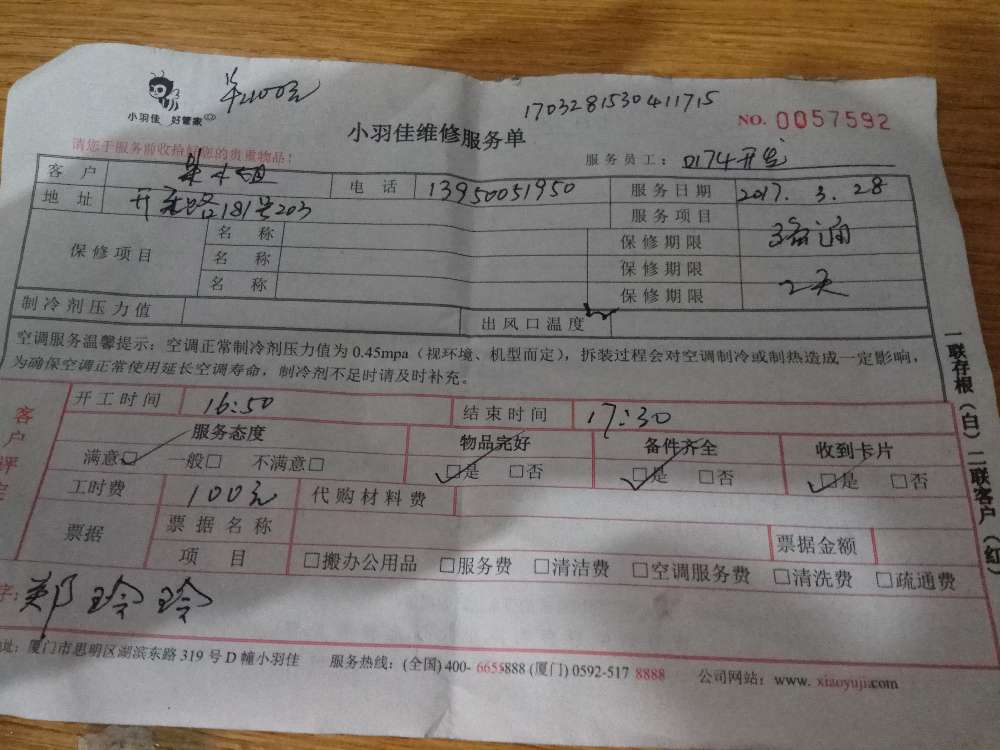 单100元
1703281530411715
小羽佳 好管家
小羽佳维修服务单
NO. 0057592
请您于服务前收持好您的贵重物品！
服务员工：0174
客户 电话 13950051950 服务日期 2017. 3. 28
地址 开元路181号203 服务项目 疏通
保修项目 名称 保修期限
名称 保修期限
名称 保修期限 2天
制冷剂压力值 出风口温度
空调服务温馨提示：空调正常制冷剂压力值为0.45mpa（视环境、机型而定），拆装过程会对空调制冷或制热造成一定影响，
为确保空调正常使用延长空调寿命，制冷剂不足时请及时补充。
客户评定
开工时间 16:50 结束时间 17:30
服务态度 物品完好 备件齐全 收到卡片
满意☑ 一般□ 不满意□ ☑是 □否 ☑是 □否 ☑是 □否
工时费 100元 代购材料费
票据 票据名称 票据金额
项目 □搬办公用品 □服务费 □清洁费 □空调服务费 □清洗费 □疏通费
字：郑玲玲
址：厦门市思明区湖滨东路319号D幢小羽佳 服务热线：(全国) 400-6655888 (厦门) 0592-517 8888 公司网站：www. xiaoyuji.com
一联存根（白）二联客户（红）